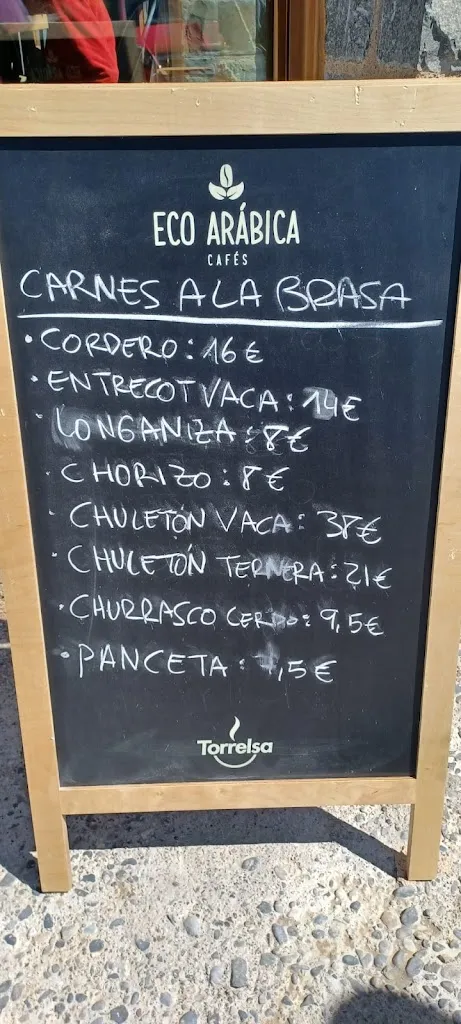 ECO ARÁBICA
CAFÉS
CARNES A LA BRASA
• CORDERO: 16€
• ENTRECOT VACA: 14€
• LONGANIZA: 8€
• CHORIZO: 8€
• CHULETÓN VACA: 38€
• CHULETÓN TERNERA: 21€
• CHURRASCO CERDO: 9,5€
• PANCETA:
Torrelsa